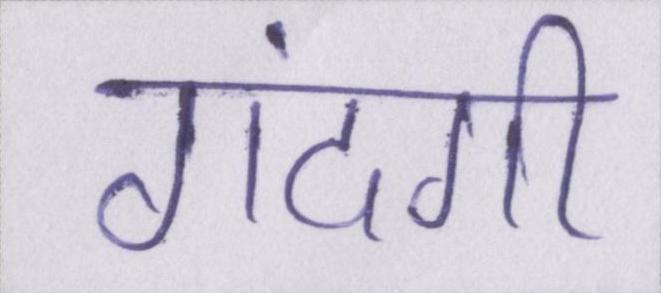 गंदगी